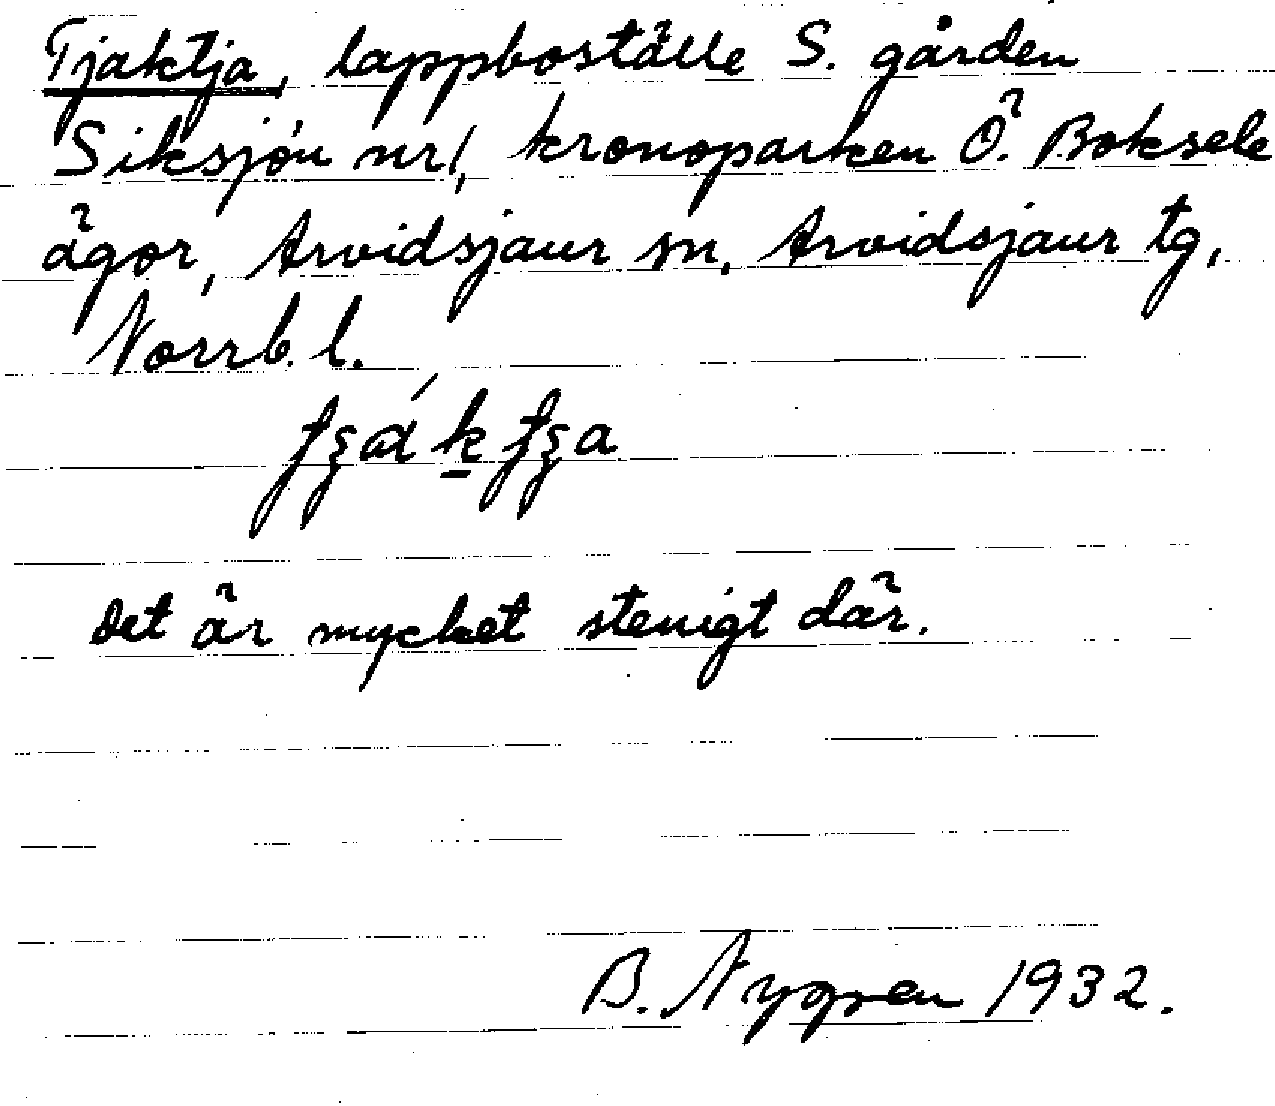 Tjaktja, lappboställe S. gården
Siksjön nr 1, kronoparken Ö. Boksele
ägor, Arvidsjaur sn, Arvidsjaur tg,
Norrb. l.
det är mycket stenigt där.
B. Nygren 1932.